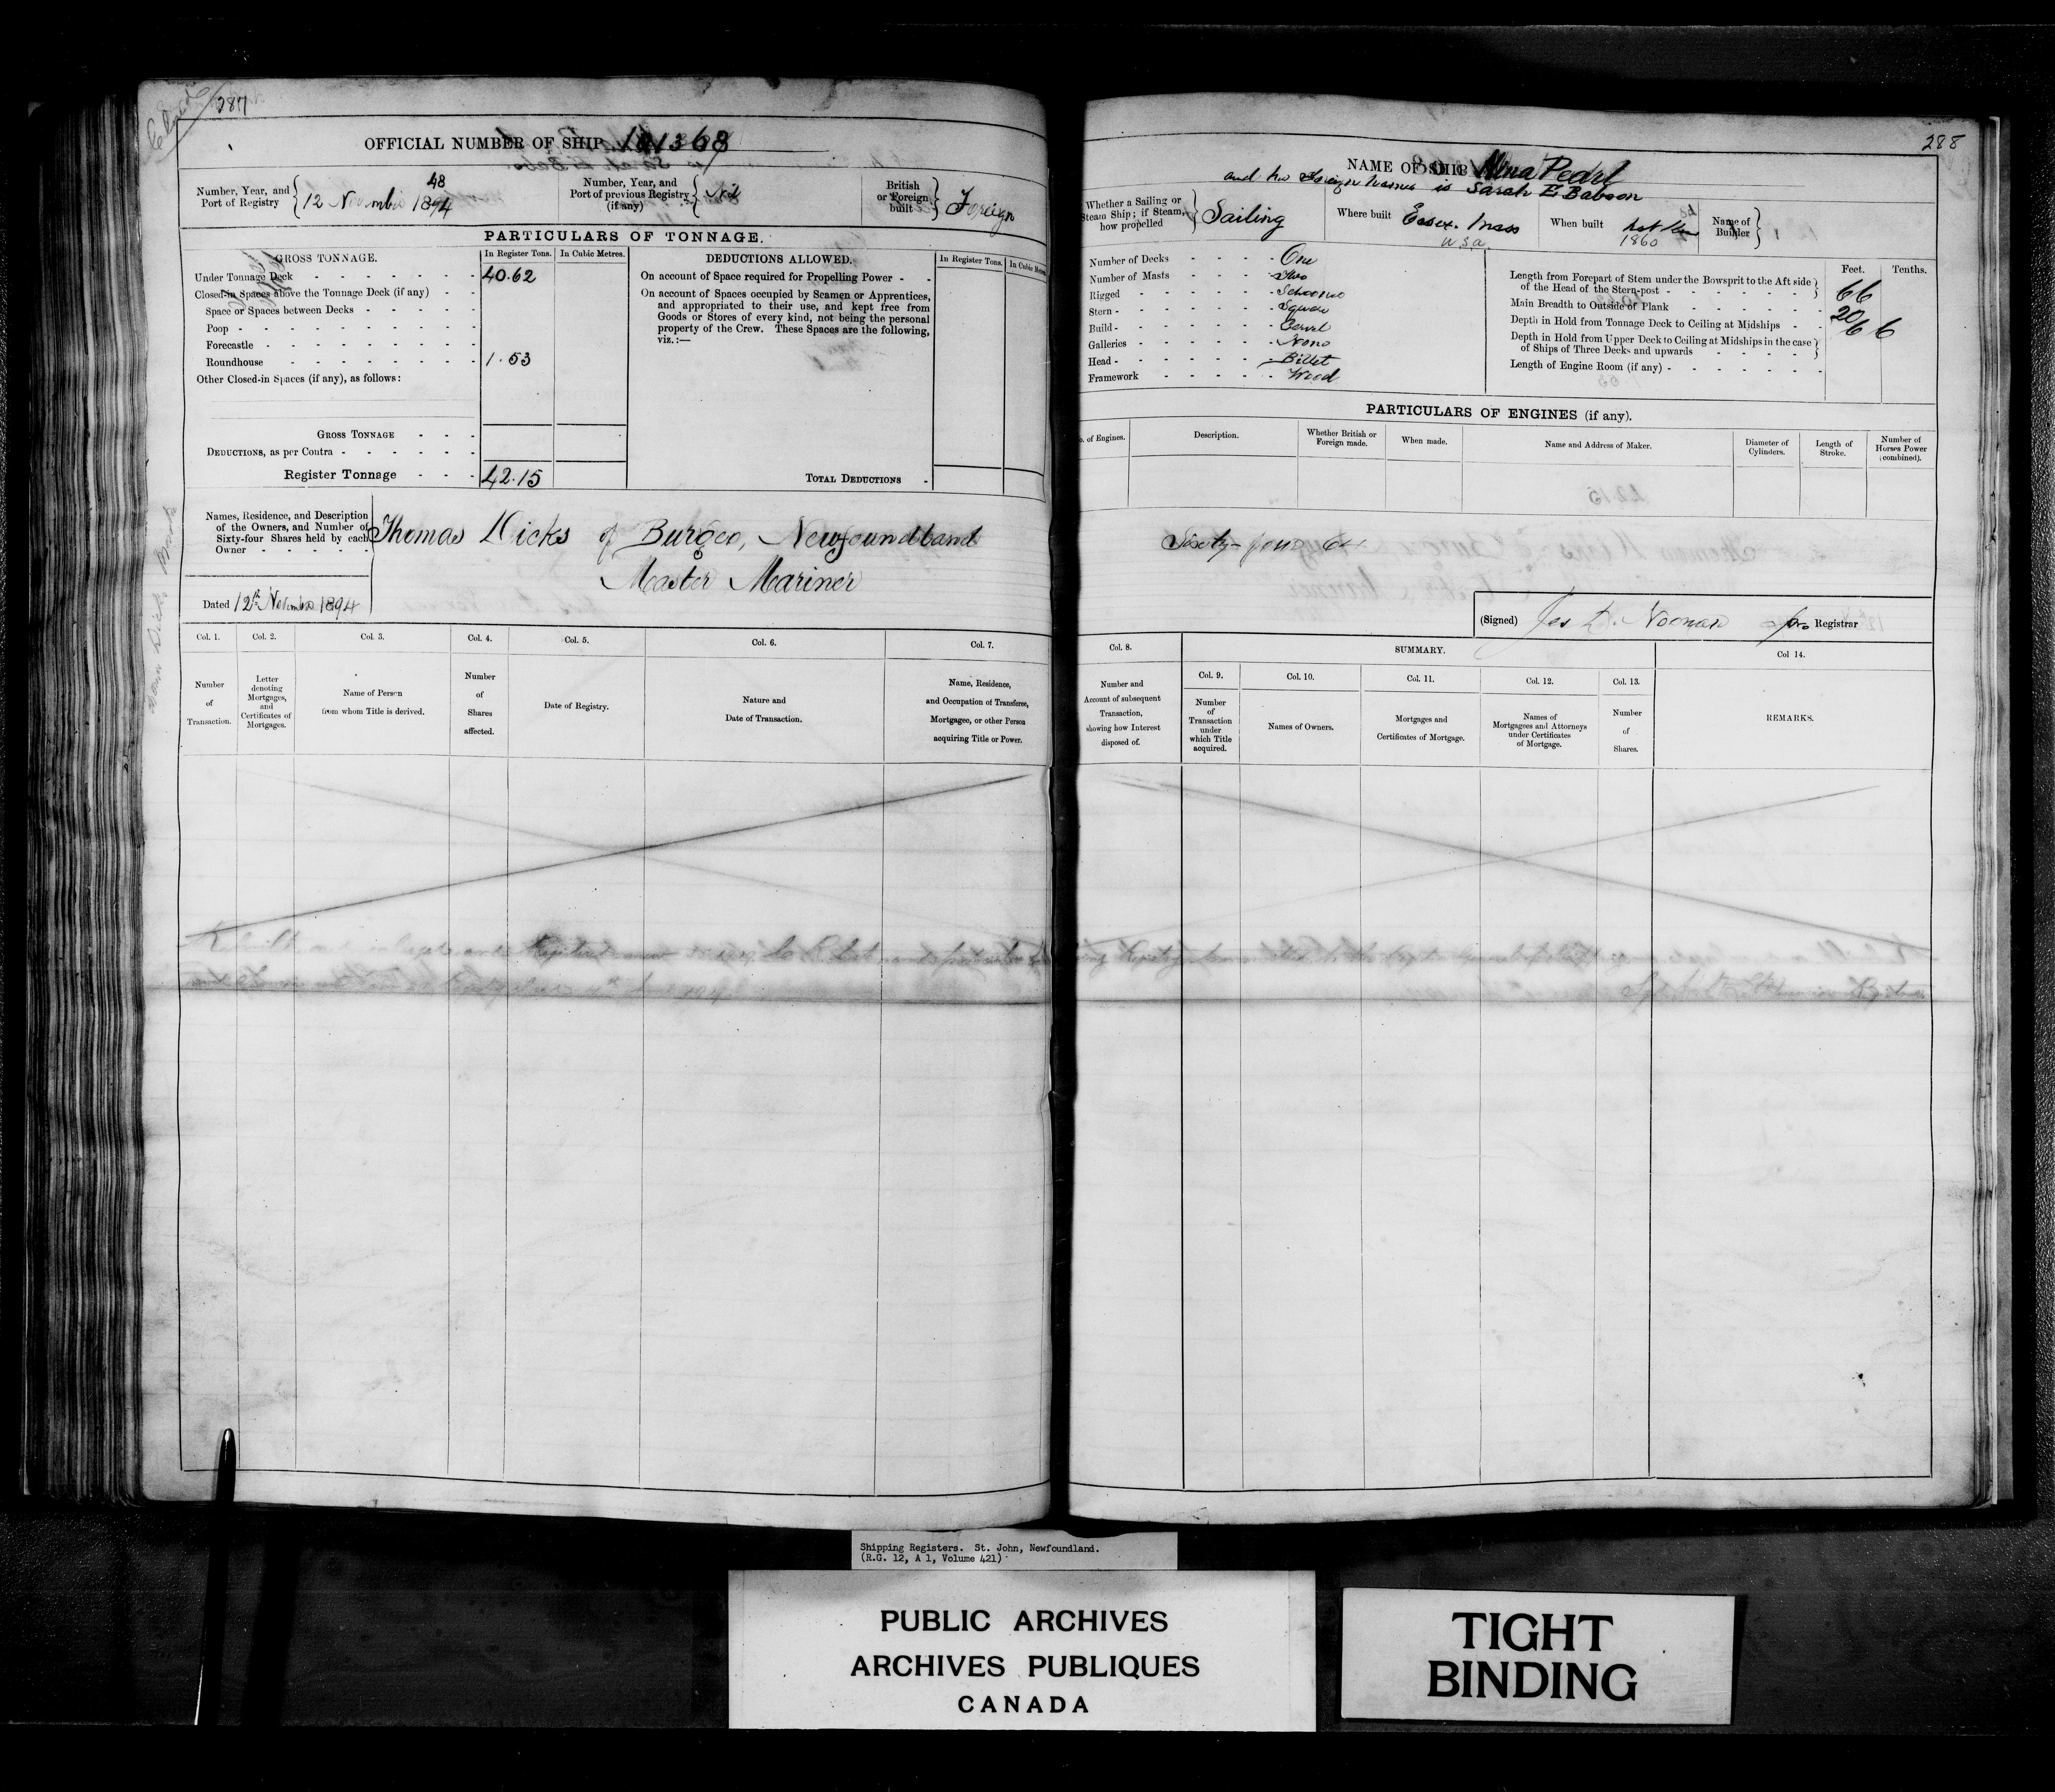 Closed
287
OFFICIAL NUMBER OF SHIP 101368
Number, Year, and Port of Registry
48
12 November 1894
Number, Year, and Port of previous Registry (if any)
Nil
British or Foreign built
Foreign
PARTICULARS OF TONNAGE.
GROSS TONNAGE.
In Register Tons.
In Cubic Metres.
Under Tonnage Deck 40.62
Closed-in Spaces above the Tonnage Deck (if any)
Space or Spaces between Decks
Poop
Forecastle
Roundhouse 1.53
Other Closed-in Spaces (if any), as follows:
GROSS TONNAGE
DEDUCTIONS, as per Contra
Register Tonnage 42.15
DEDUCTIONS ALLOWED.
In Register Tons.
In Cubic Metres
On account of Space required for Propelling Power
On account of Spaces occupied by Seamen or Apprentices,
and appropriated to their use, and kept free from
Goods or Stores of every kind, not being the personal
property of the Crew. These Spaces are the following,
viz.:—
TOTAL DEDUCTIONS
Names, Residence, and Description
of the Owners, and Number of
Sixty-four Shares held by each
Owner
Thomas Dicks of Burgeo, Newfoundland
Master Mariner
Dated 12th November 1894
Col. 1.
Number
of
Transaction.
Col. 2.
Letter
denoting
Mortgages,
and
Certificates of
Mortgages.
Col. 3.
Name of Person
from whom Title is derived.
Col. 4.
Number
of
Shares
affected.
Col. 5.
Date of Registry.
Col. 6.
Nature and
Date of Transaction.
Col. 7.
Name, Residence,
and Occupation of Transferee,
Mortgagee, or other Person
acquiring Title or Power.
288
NAME OF SHIP Pearl
and her Foreign name is Sarah E Babson
Whether a Sailing or
Steam Ship; if Steam,
how propelled
Sailing
Where built
Essex. Mass
U.S.A.
When built
1860
Name of
Builder
Number of Decks One
Number of Masts Two
Rigged Schooner
Stern Square
Build Carvel
Galleries None
Head Billet
Framework Wood
Feet.
Tenths.
Length from Forepart of Stem under the Bowsprit to the Aft side
of the Head of the Stern-post 66
Main Breadth to Outside of Plank 20
Depth in Hold from Tonnage Deck to Ceiling at Midships 6 6
Depth in Hold from Upper Deck to Ceiling at Midships in the case
of Ships of Three Decks and upwards
Length of Engine Room (if any)
PARTICULARS OF ENGINES (if any).
o. of Engines.
Description.
Whether British or
Foreign made.
When made.
Name and Address of Maker.
Diameter of
Cylinders.
Length of
Stroke.
Number of
Horses Power
(combined).
Sixty-four 64
(Signed) Jas D. Noonan pro Registrar
Col. 8.
Number and
Account of subsequent
Transaction,
showing how Interest
disposed of.
SUMMARY.
Col. 9.
Number
of
Transaction
under
which Title
acquired.
Col. 10.
Names of Owners.
Col. 11.
Mortgages and
Certificates of Mortgage.
Col. 12.
Names of
Mortgagees and Attorneys
under Certificates
of Mortgage.
Col. 13.
Number
of
Shares.
Col 14.
REMARKS.
Shipping Registers. St. John, Newfoundland.
(R.G. 12, A 1, Volume 421)
PUBLIC ARCHIVES
ARCHIVES PUBLIQUES
CANADA
TIGHT
BINDING